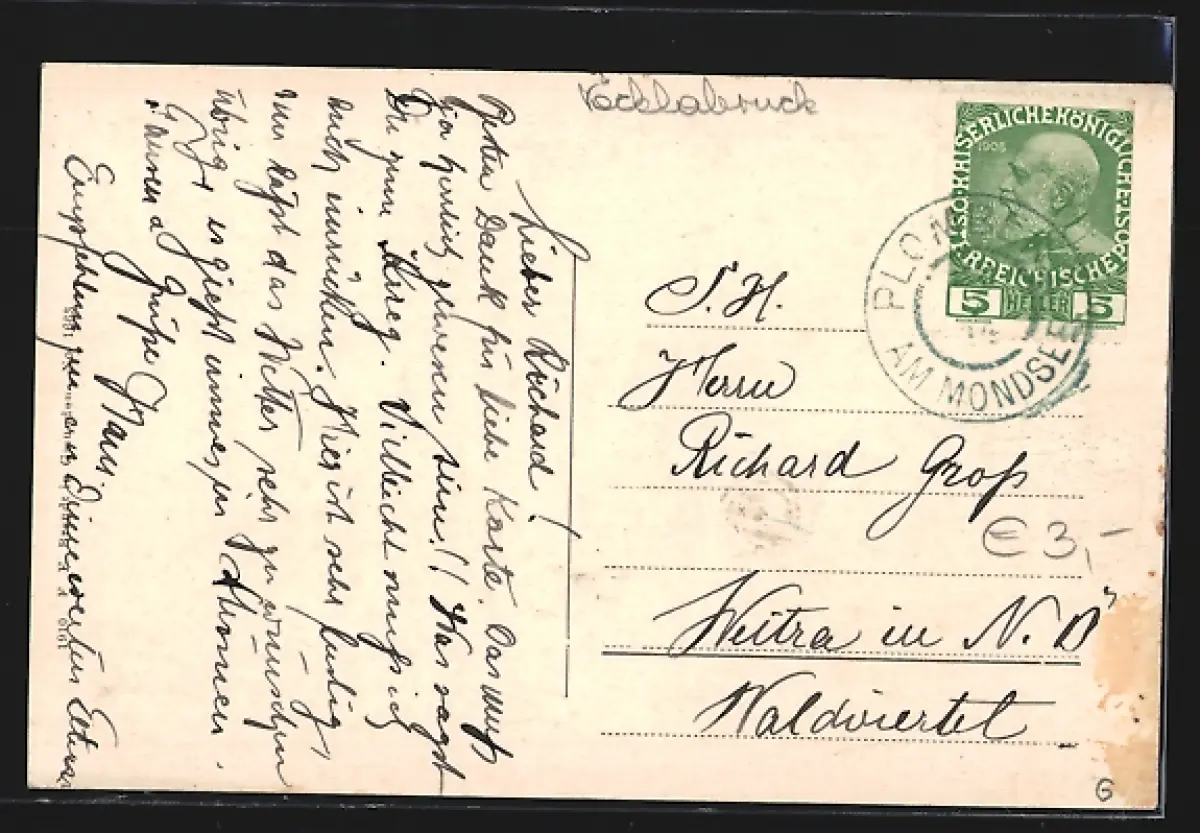 Vöcklabruck
Lieber Richard!
Besten Dank für liebe Karte. Das muß
ja herrlich gewesen sein!! Was sagst
Du zum Krieg. Vielleicht muß ich
auch einrücken. Hier ist sehr lustig,
nur läßt das Wetter sehr zu wünschen
übrig, es gießt immer in Strömen.
Grüße Hans.
Empfehlung Deinen werten Eltern
S. H.
Herrn
Richard Groß
Weitra in N. Ö
Waldviertel
KAISERLICHE KÖNIGLICHE ÖSTERREICHISCHE POST
1908
5 HELLER 5
PLOMBERG
AM MONDSEE
€ 3,-
G
1910